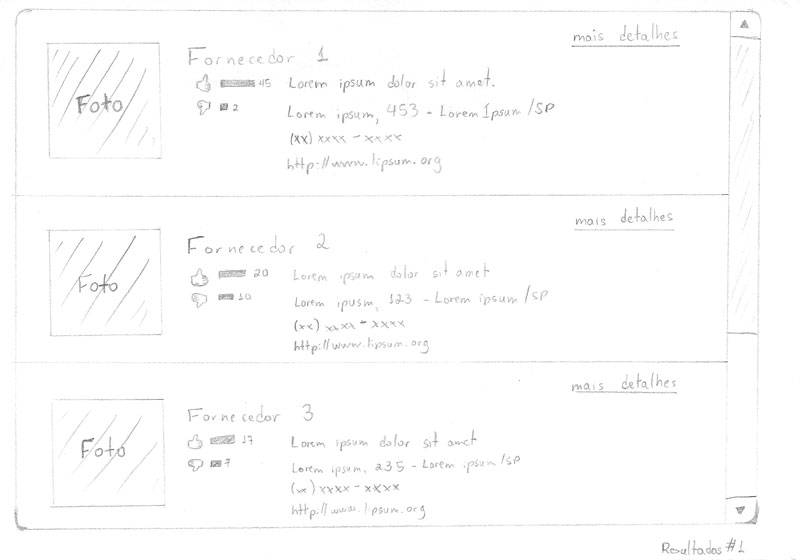 mais detalhes
Foto
Fornecedor 1
45
Lorem ipsum dolor sit amet.
2
Lorem ipsum, 453 - Lorem Ipsum /SP
(xx) xxxx - xxxx
http://www.lipsum.org
mais detalhes
Foto
Fornecedor 2
20
Lorem ipsum dolor sit amet
10
Lorem ipusm, 123 - Lorem ipsum /SP
(xx) xxxx - xxxx
http://www.lipsum.org
mais detalhes
Foto
Fornecedor 3
17
Lorem ipsum dolor sit amet
7
Lorem ipsum, 235 - Lorem ipsum /SP
(xx) xxxx - xxxx
http://www.lipsum.org
Resultados #1